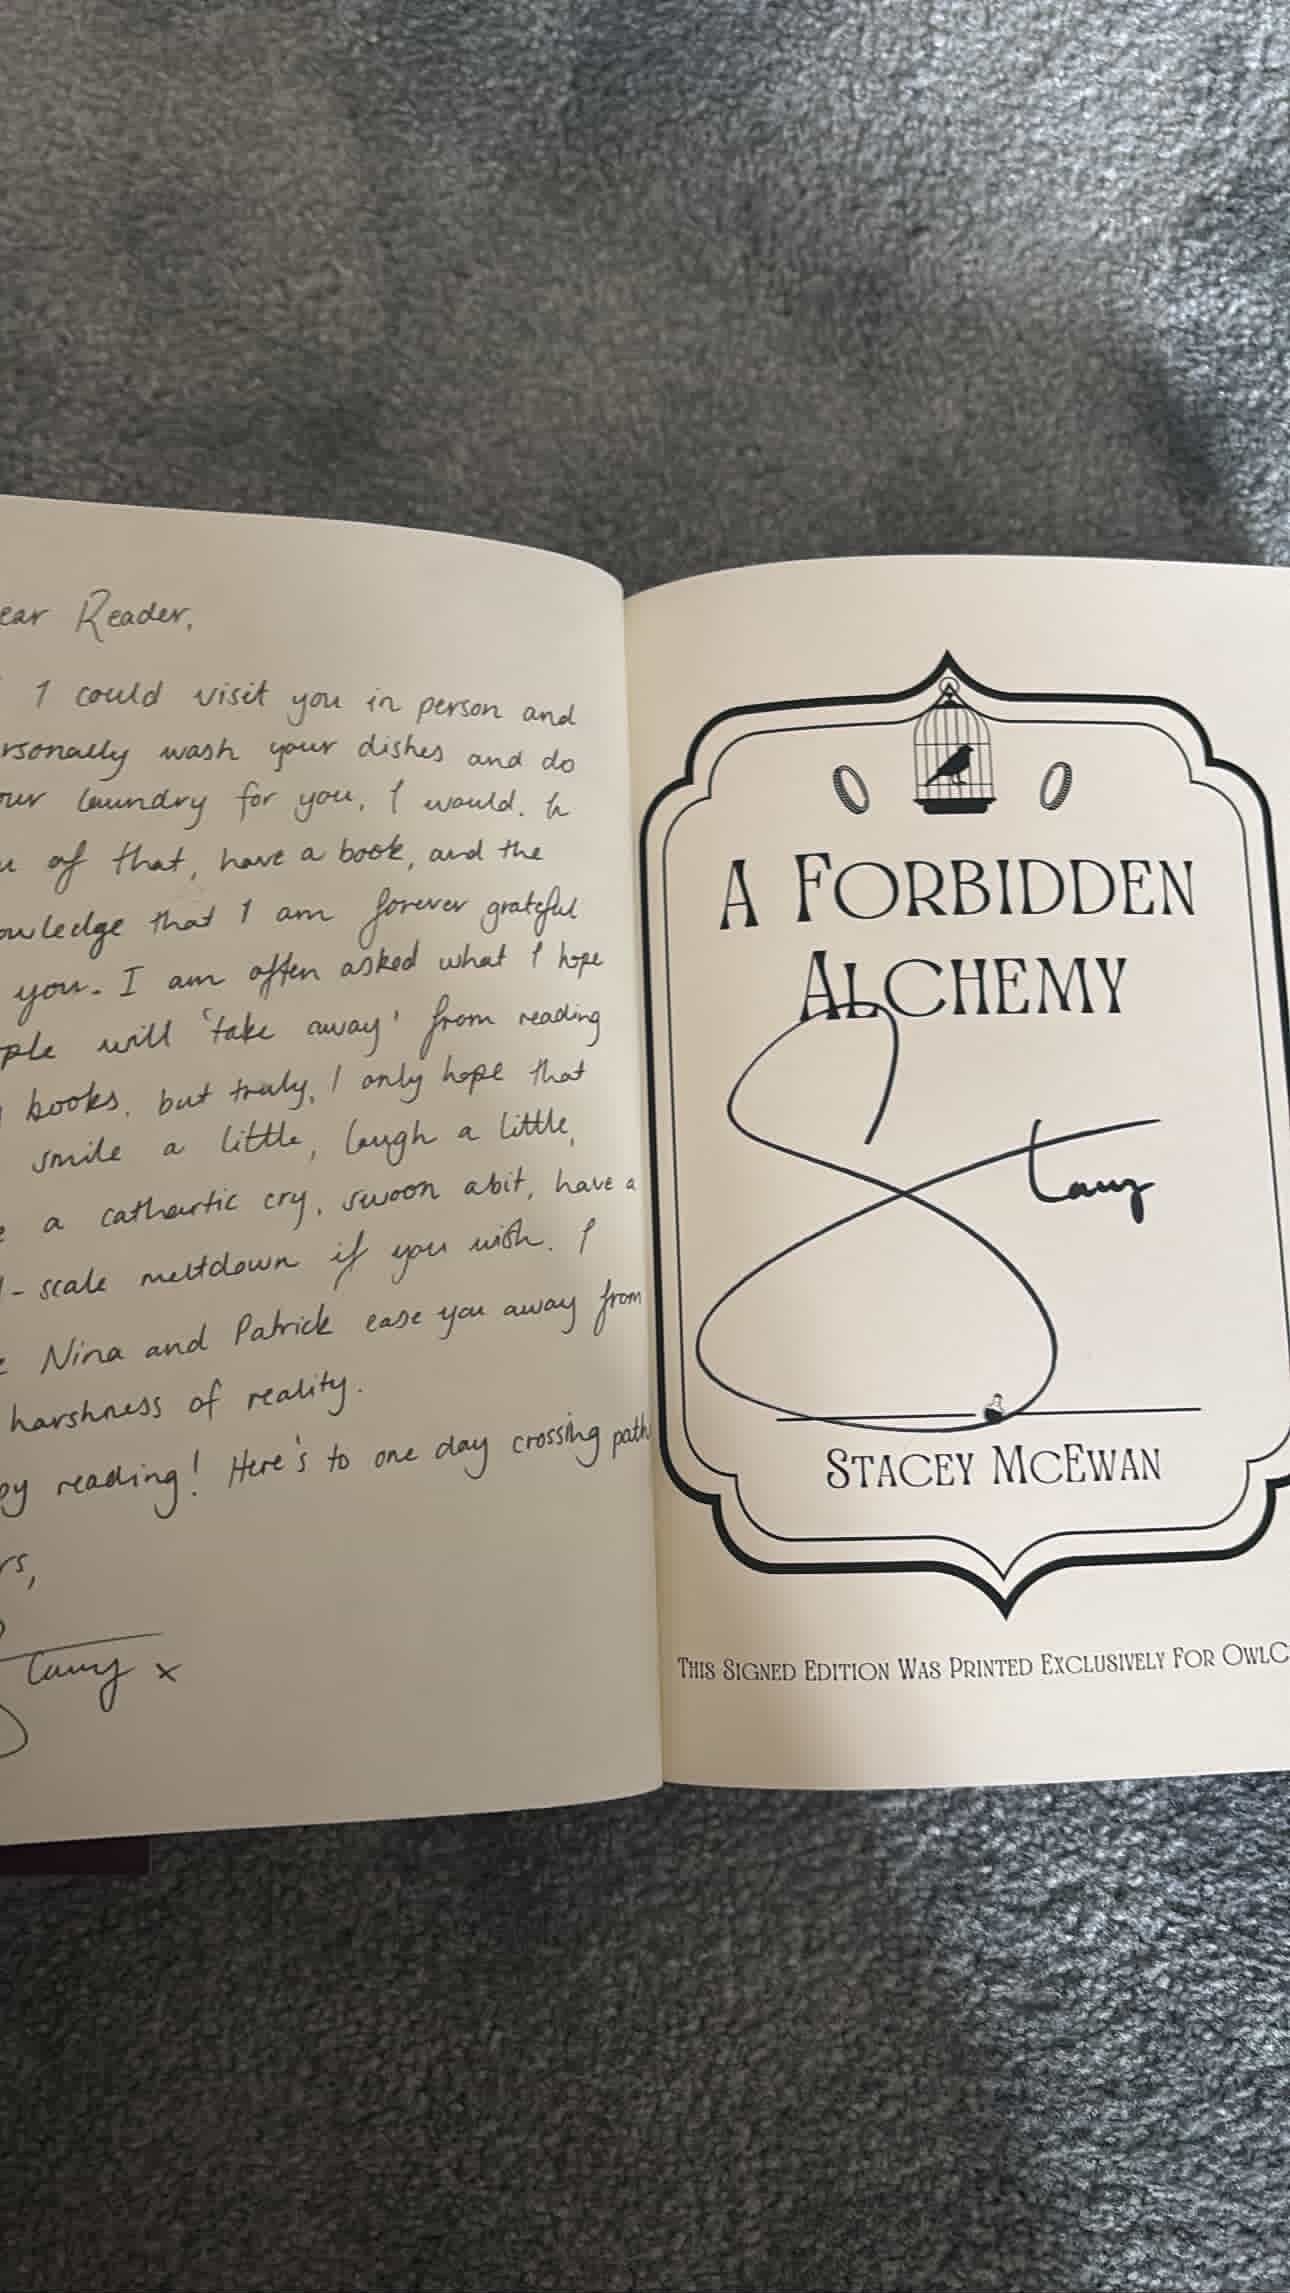 ear Reader,
I could visit you in person and
rsonally wash your dishes and do
our laundry for you, I would. In
u of that, have a book, and the
owledge that I am forever grateful
you. I am often asked what I hope
ple will 'take away' from reading
books, but truly, I only hope that
smile a little, laugh a little,
e a cathartic cry, swoon a bit, have a
l-scale meltdown if you wish. I
e Nina and Patrick ease you away from
harshness of reality.
py reading! Here's to one day crossing path
rs,
Stacey x
A FORBIDDEN
ALCHEMY
Stacey
STACEY MCEWAN
THIS SIGNED EDITION WAS PRINTED EXCLUSIVELY FOR OWLC